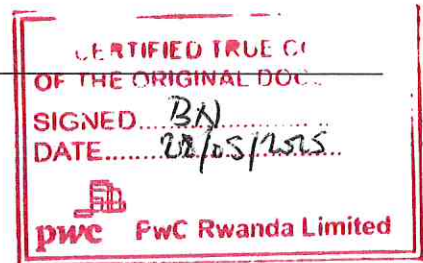 CERTIFIED TRUE
OF THE ORIGINAL DOC
SIGNED.....BN..........
DATE.......28/05/2025
pwc PwC Rwanda Limited